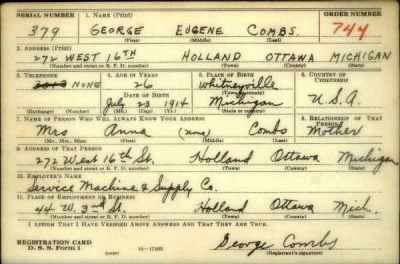 SERIAL NUMBER 1. NAME (Print) ORDER NUMBER
379 GEORGE EUGENE COMBS. 744
(First) (Middle) (Last)
2. ADDRESS (Print)
272 WEST 16TH HOLLAND OTTAWA MICHIGAN
(Number and street or R. F. D. number) (Town) (County) (State)
3. TELEPHONE 4. AGE IN YEARS 5. PLACE OF BIRTH 6. COUNTRY OF CITIZENSHIP
NONE 26 Whitneyville
DATE OF BIRTH (Town or county)
July 23 1914 Michigan U.S.A.
(Exchange) (Number) (Mo.) (Day) (Yr.) (State or country)
7. NAME OF PERSON WHO WILL ALWAYS KNOW YOUR ADDRESS 8. RELATIONSHIP OF THAT PERSON
Mrs Anna (none) Combs Mother
(Mr., Mrs., Miss) (First) (Middle) (Last)
9. ADDRESS OF THAT PERSON
272 West 16th St. Holland Ottawa Michigan
(Number and street or R. F. D. number) (Town) (County) (State)
10. EMPLOYER'S NAME
Service Machine & Supply Co.
11. PLACE OF EMPLOYMENT OR BUSINESS
44 W. 3rd St. Holland Ottawa Mich.
(Number and street or R. F. D. number) (Town) (County) (State)
I AFFIRM THAT I HAVE VERIFIED ABOVE ANSWERS AND THAT THEY ARE TRUE.
REGISTRATION CARD
D. S. S. Form 1 (over) 16—17105 George Combs
(Registrant's signature)